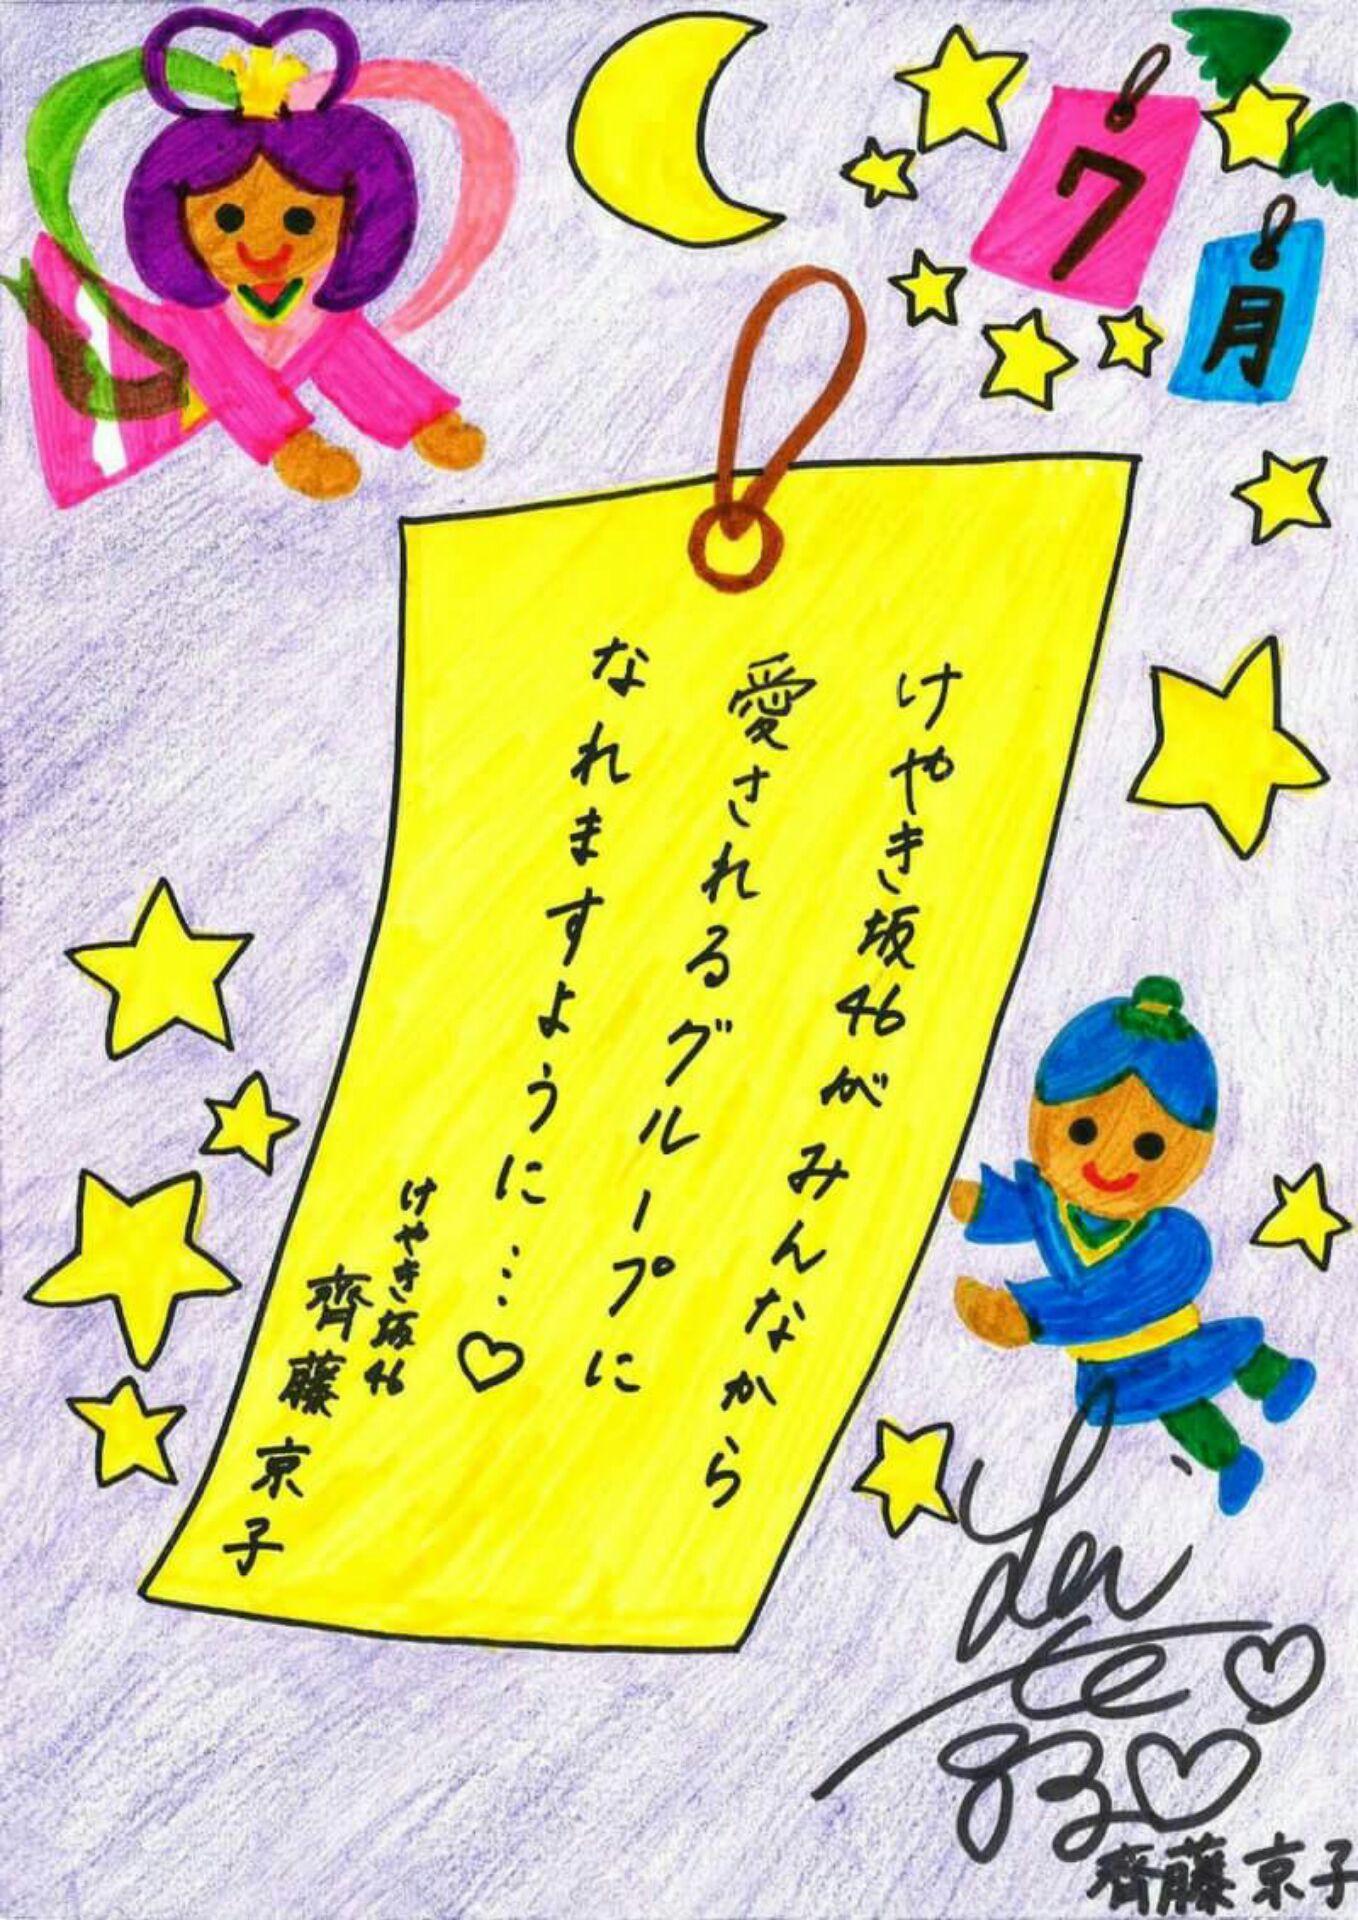 7月
けやき坂46がみんなから
愛されるグループに
なれますように…♡
けやき坂46
齊藤京子
齊藤京子